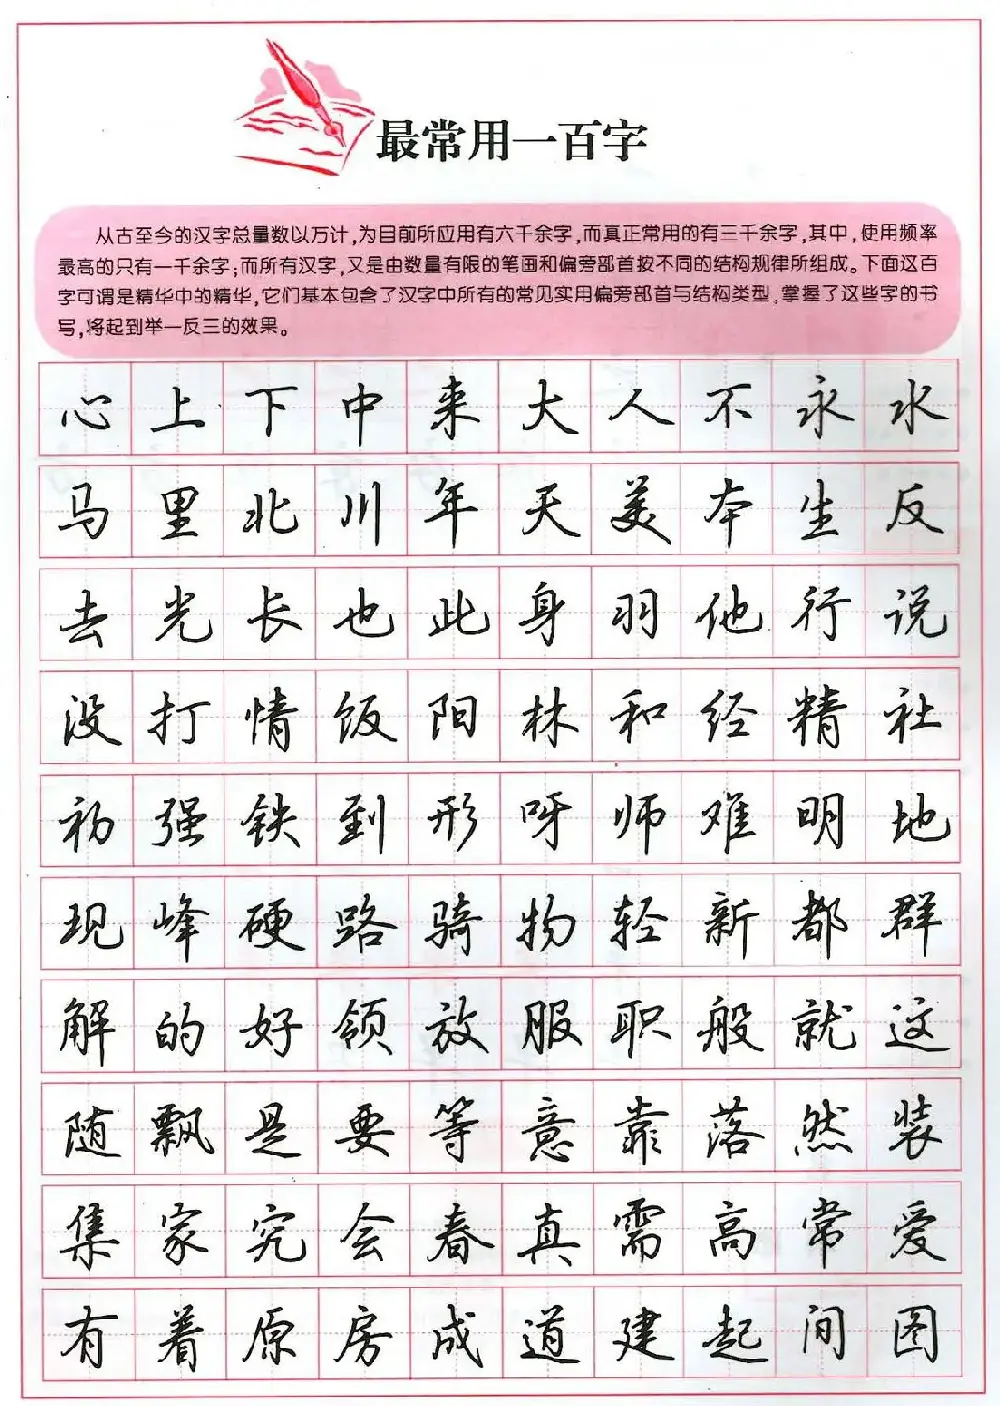 最常用一百字
从古至今的汉字总量数以万计,为目前所应用有六千余字,而真正常用的有三千余字,其中,使用频率
最高的只有一千余字;而所有汉字,又是由数量有限的笔画和偏旁部首按不同的结构规律所组成。下面这百
字可谓是精华中的精华,它们基本包含了汉字中所有的常见实用偏旁部首与结构类型,掌握了这些字的书
写,将起到举一反三的效果。
心上下中来大人不永水
马里北川年天美本生反
去光长也此身羽他行说
没打情饭阳林和经精社
初强铁到形呀师难明地
现峰硬路骑物轻新都群
解的好领放服职般就这
随飘是要等意靠落然装
集家究会春真需高常爱
有着原房成道建起间图